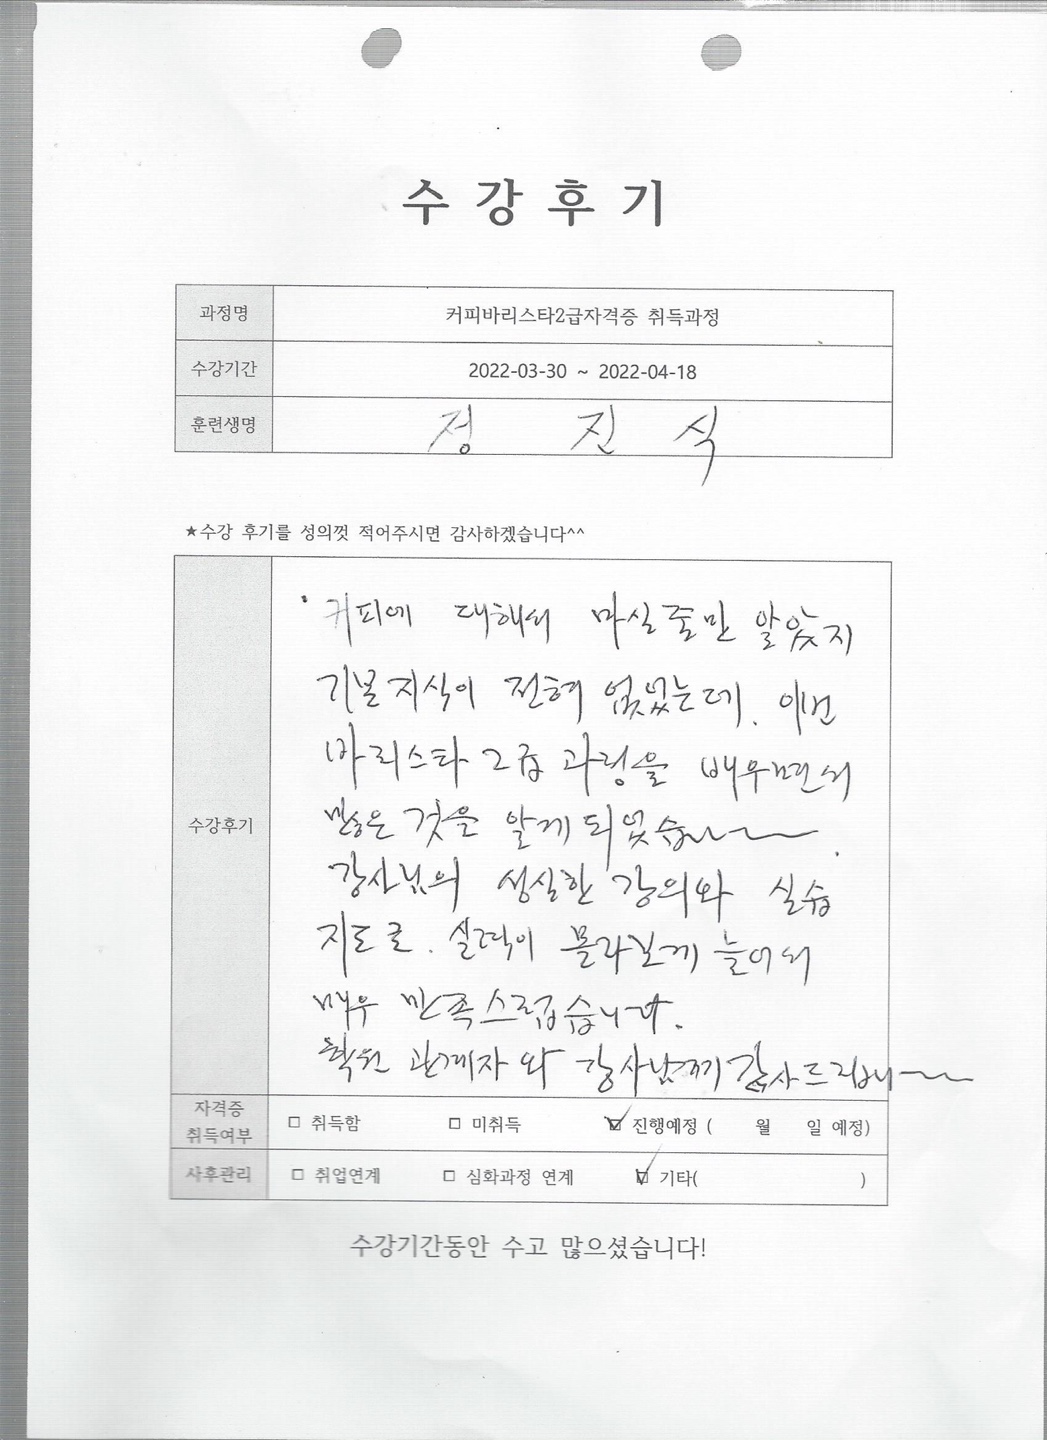 수 강 후 기
과정명 커피바리스타2급자격증 취득과정
수강기간 2022-03-30 ~ 2022-04-18
훈련생명 정 진 식
★수강 후기를 성의껏 적어주시면 감사하겠습니다^^
수강후기
· 커피에 대해서 마실줄만 알았지
기본지식이 전혀 없었는데. 이번
바리스타 2급 과정을 배우면서
많은 것을 알게 되었습니다.
강사님의 성실한 강의와 실습
지도로. 실력이 몰라보게 늘어서
매우 만족스럽습니다.
학원 관계자와 강사님께 감사드립니다
자격증 취득여부 □ 취득함 □ 미취득 ☑ 진행예정 ( 월 일 예정)
사후관리 □ 취업연계 □ 심화과정 연계 ☑ 기타( )
수강기간동안 수고 많으셨습니다!